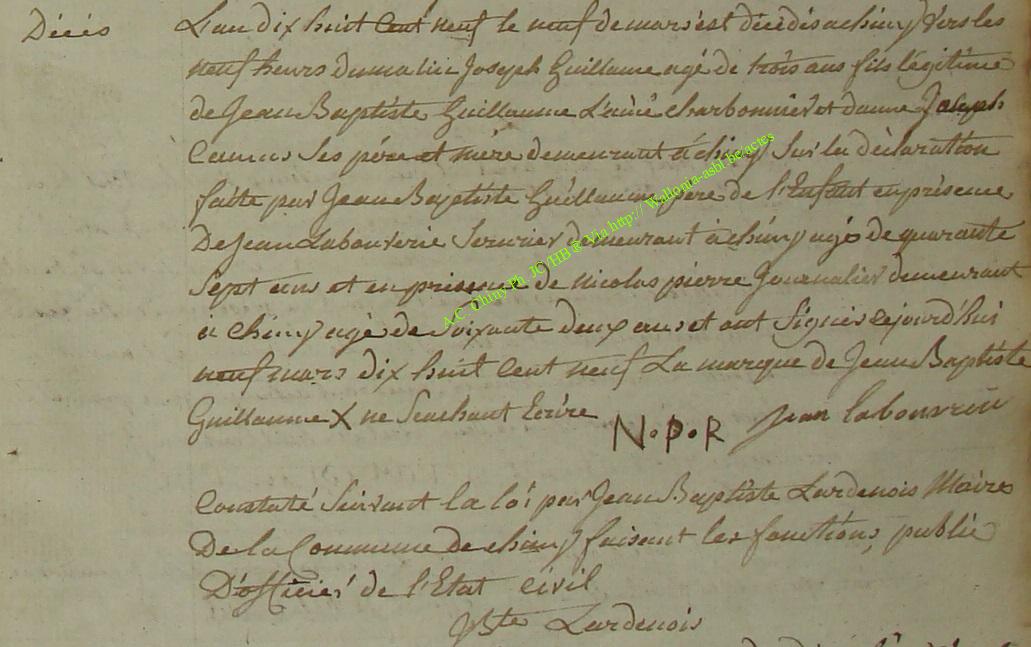 Décès
L'an dix huit cent neuf le neuf de mars est décédés a chiny vers les
neuf heurs du matin Joseph Guillaume agé de trois ans fils légitime
de Jean Baptiste Guillaume L'ainé charbonnier et danne Joseph
Camus ses père et mère demeurant à chiny Sur la déclaration
faitte par Jean Baptiste Guillaume père de l'Enfant en présence
De Jean Labouverie Serurier demeurant à chiny agé de quarante
Sept ans et en présence de Nicolas pierre Journalier demeurant
a chiny agé de Soixante deux ans et ont Signés cejourd'hui
neuf mars dix huit cent neuf La marque de Jean Baptiste
Guillaume X ne Scachant Ecrire
N.P.R Jean labouverie
Constaté Suivant la loi par Jean Baptiste Lardenois Maires
De la Commune de chiny faisant les fonctions publie
D'officier de l'Etat civil
JBte Lardenois
A.C. Chiny Ph. JC/HB @ Via http:// Wallonia-asbl.be/actes